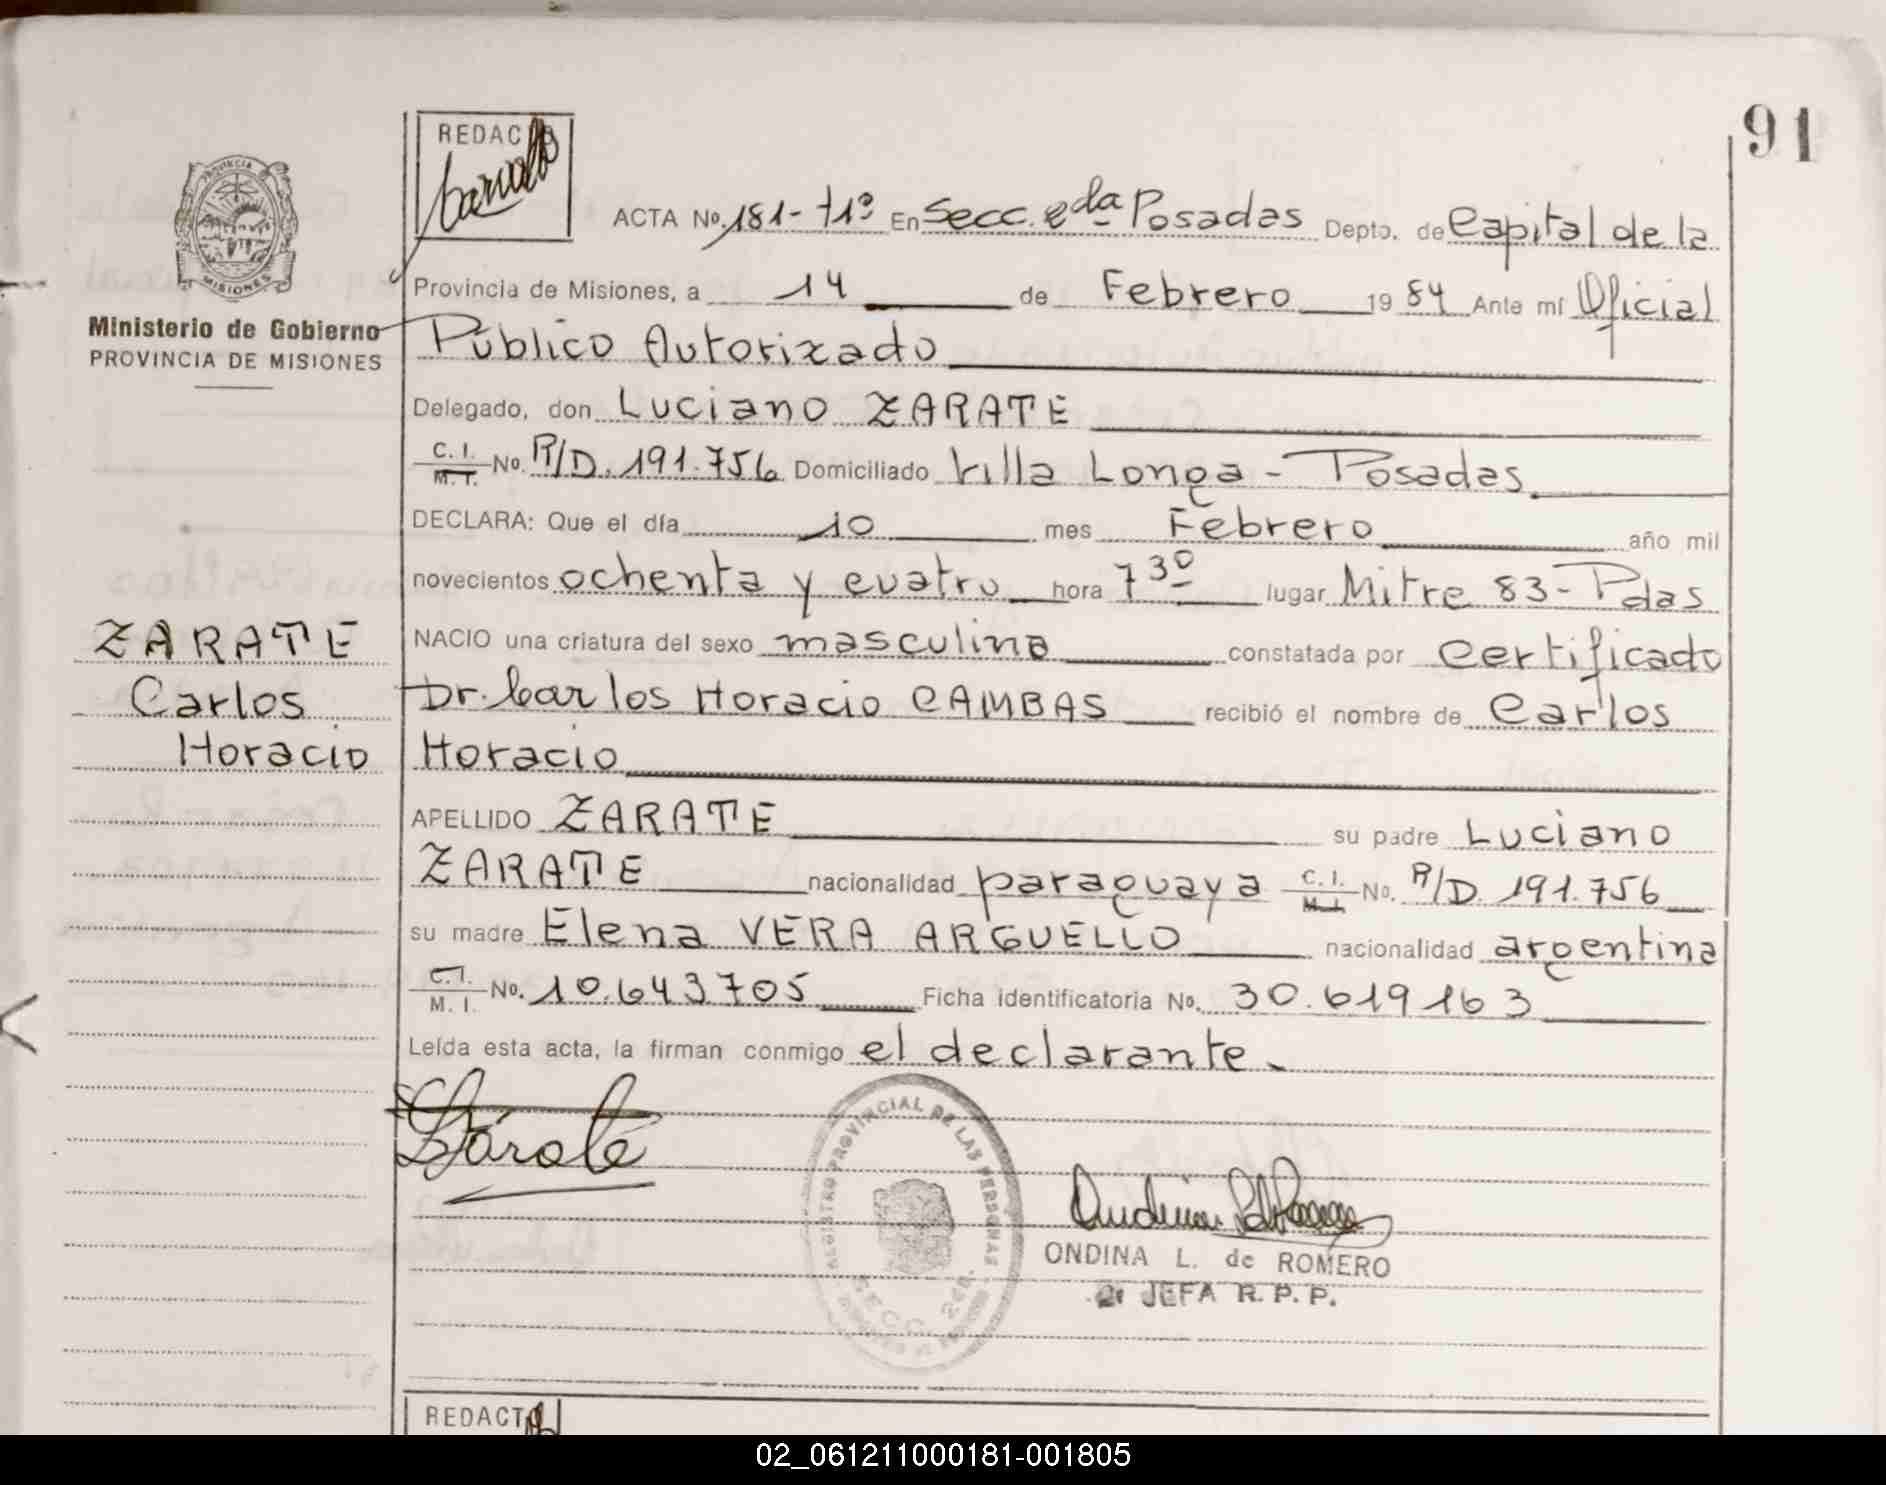 91
REDACTO
ACTA No. 181-T1º En Secc. 2da Posadas Depto. de Capital de la
PROVINCIA
MISIONES
Provincia de Misiones, a 14 de Febrero 1984 Ante mí Oficial
Ministerio de Gobierno
PROVINCIA DE MISIONES
Público Autorizado
Delegado, don Luciano ZARATE
C. I. M. T. No. R/D. 191.756 Domiciliado Villa Longa - Posadas
DECLARA: Que el día 10 mes Febrero año mil
novecientos ochenta y cuatro hora 7 30 lugar Mitre 83 - Pdas
ZARATE
Carlos
Horacio
NACIO una criatura del sexo masculino constatada por Certificado
Dr. Carlos Horacio CAMBAS recibió el nombre de Carlos
Horacio
APELLIDO ZARATE su padre Luciano
ZARATE nacionalidad paraguaya C. I. M. I. No. R/D. 191.756
su madre Elena VERA ARGUELLO nacionalidad argentina
C. I. M. I. No. 10.643705 Ficha identificatoria No. 30.619163
Leída esta acta, la firman conmigo el declarante
Zárate
REGISTRO PROVINCIAL DE LAS PERSONAS
SECC. 2da.
ONDINA L. de ROMERO
JEFA R. P. P.
REDACTO
02_061211000181-001805